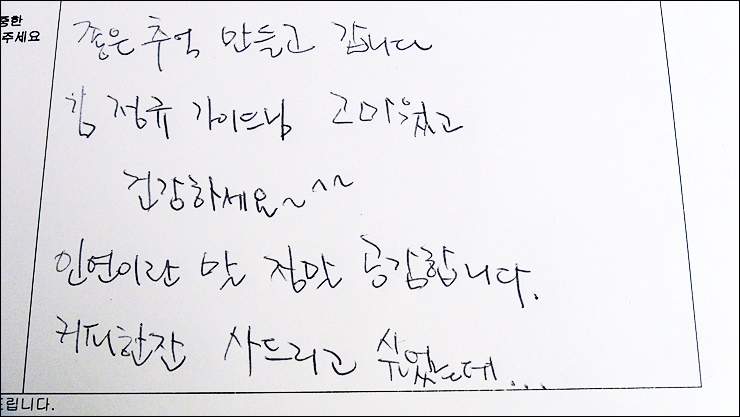 중한
주세요
좋은 추억 만들고 갑니다
김정류 가이드님 고마웠고
건강하세요~^^~
인연이란 말 정말 공감합니다.
커피한잔 사드리고 싶었는데...
드립니다.